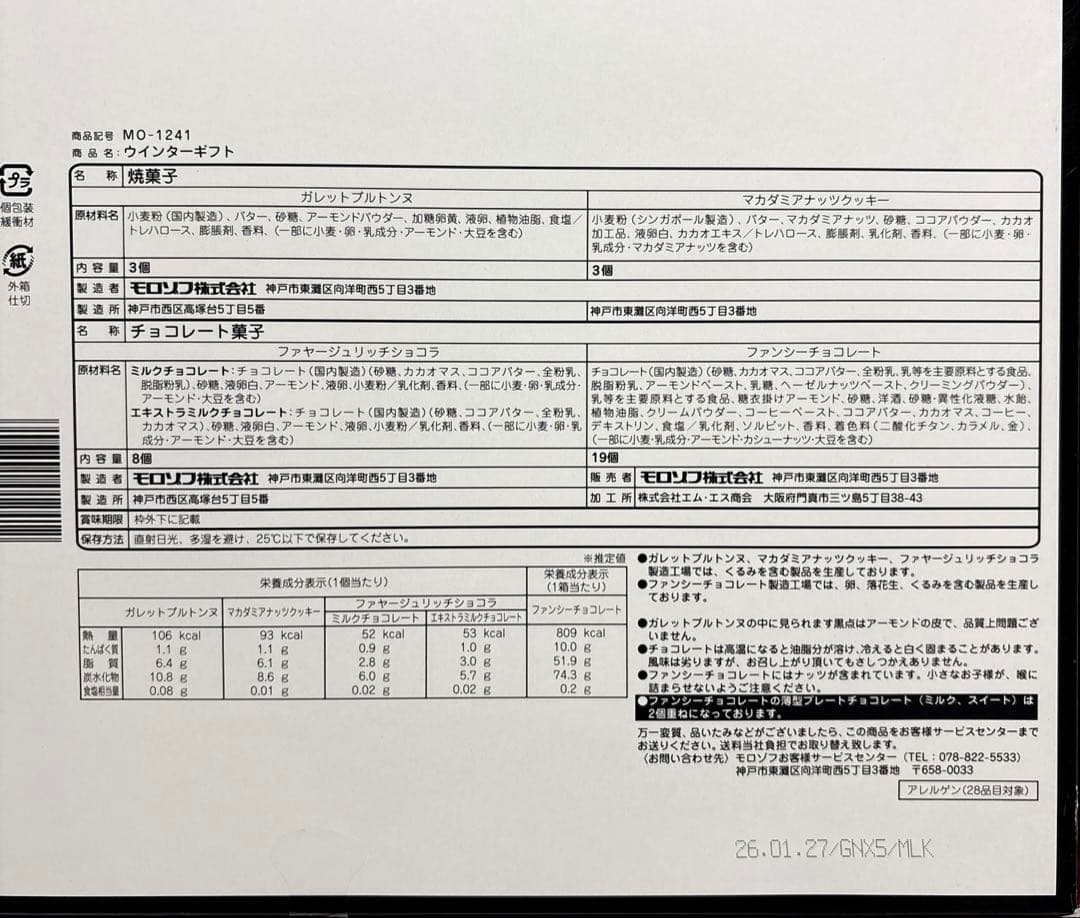 商品記号 MO-1241
商品名：ウインターギフト
プラ
個包装
緩衝材
紙
外箱
仕切
名 称 焼菓子
ガレットブルトンヌ マカダミアナッツクッキー
原材料名 小麦粉（国内製造）、バター、砂糖、アーモンドパウダー、加糖卵黄、液卵、植物油脂、食塩／
トレハロース、膨脹剤、香料、（一部に小麦・卵・乳成分・アーモンド・大豆を含む）
小麦粉（シンガポール製造）、バター、マカダミアナッツ、砂糖、ココアパウダー、カカオ
加工品、液卵白、カカオエキス／トレハロース、膨脹剤、乳化剤、香料、（一部に小麦・卵・
乳成分・マカダミアナッツを含む）
内容量 3個 3個
製造者 モロゾフ株式会社 神戸市東灘区向洋町西5丁目3番地
製造所 神戸市西区高塚台5丁目5番 神戸市東灘区向洋町西5丁目3番地
名 称 チョコレート菓子
ファヤージュリッチショコラ ファンシーチョコレート
原材料名 ミルクチョコレート：チョコレート（国内製造）（砂糖、カカオマス、ココアバター、全粉乳、
脱脂粉乳）、砂糖、液卵白、アーモンド、液卵、小麦粉／乳化剤、香料、（一部に小麦・卵・乳成分・
アーモンド・大豆を含む）
エキストラミルクチョコレート：チョコレート（国内製造）（砂糖、ココアバター、全粉乳、
カカオマス）、砂糖、液卵白、アーモンド、液卵、小麦粉／乳化剤、香料、（一部に小麦・卵・乳
成分・アーモンド・大豆を含む）
チョコレート（国内製造）（砂糖、カカオマス、ココアバター、全粉乳、乳等を主要原料とする食品、
脱脂粉乳、アーモンドペースト、乳糖、ヘーゼルナッツペースト、クリーミングパウダー）、
乳等を主要原料とする食品、糖衣掛けアーモンド、砂糖、洋酒、砂糖・異性化液糖、水飴、
植物油脂、クリームパウダー、コーヒーペースト、ココアバター、カカオマス、コーヒー、
デキストリン、食塩／乳化剤、ソルビット、香料、着色料（二酸化チタン、カラメル、金）、
（一部に小麦・乳成分・アーモンド・カシューナッツ・大豆を含む）
内容量 8個 19個
製造者 モロゾフ株式会社 神戸市東灘区向洋町西5丁目3番地 販売者 モロゾフ株式会社 神戸市東灘区向洋町西5丁目3番地
製造所 神戸市西区高塚台5丁目5番 加工所 株式会社エム・エス商会 大阪府門真市三ツ島5丁目38-43
賞味期限 枠外下に記載
保存方法 直射日光、多湿を避け、25℃以下で保存してください。
※推定値
栄養成分表示（1個当たり） 栄養成分表示
（1箱当たり）
ガレットブルトンヌ マカダミアナッツクッキー ファヤージュリッチショコラ ファンシーチョコレート
ミルクチョコレート エキストラミルクチョコレート
熱量 106 kcal 93 kcal 52 kcal 53 kcal 809 kcal
たんぱく質 1.1 g 1.1 g 0.9 g 1.0 g 10.0 g
脂質 6.4 g 6.1 g 2.8 g 3.0 g 51.9 g
炭水化物 10.8 g 8.6 g 6.0 g 5.7 g 74.3 g
食塩相当量 0.08 g 0.01 g 0.02 g 0.02 g 0.2 g
●ガレットブルトンヌ、マカダミアナッツクッキー、ファヤージュリッチショコラ
製造工場では、くるみを含む製品を生産しております。
●ファンシーチョコレート製造工場では、卵、落花生、くるみを含む製品を生産し
ております。
●ガレットブルトンヌの中に見られます黒点はアーモンドの皮で、品質上問題ござ
いません。
●チョコレートは高温になると油脂分が溶け、冷えると白く固まることがあります。
風味は劣りますが、お召し上がり頂いてもさしつかえありません。
●ファンシーチョコレートにはナッツが含まれています。小さなお子様が、喉に
詰まらせないようご注意ください。
●ファンシーチョコレートの薄型プレートチョコレート（ミルク、スイート）は
2個重ねになっております。
万一変質、品いたみなどがございましたら、この商品をお客様サービスセンターまで
お送りください。送料当社負担でお取り替え致します。
〈お問い合わせ先〉モロゾフお客様サービスセンター（TEL：078-822-5533）
神戸市東灘区向洋町西5丁目3番地 〒658-0033
アレルゲン（28品目対象）
26.01.27/GNX5/MLK